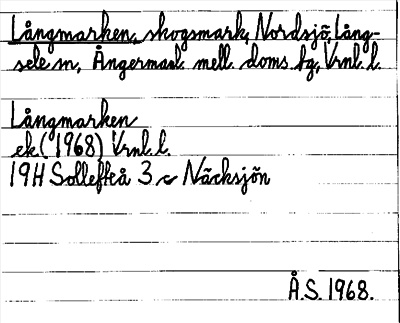 Långmarken, skogsmark, Nordsjö, Lång-
sele sn, Ångermanl. mell. doms. fg, Vrnl. l.
Långmarken
ek (1968) Vrnl. l.
19H Sollefteå 3 c Näcksjön
Å.S. 1968.